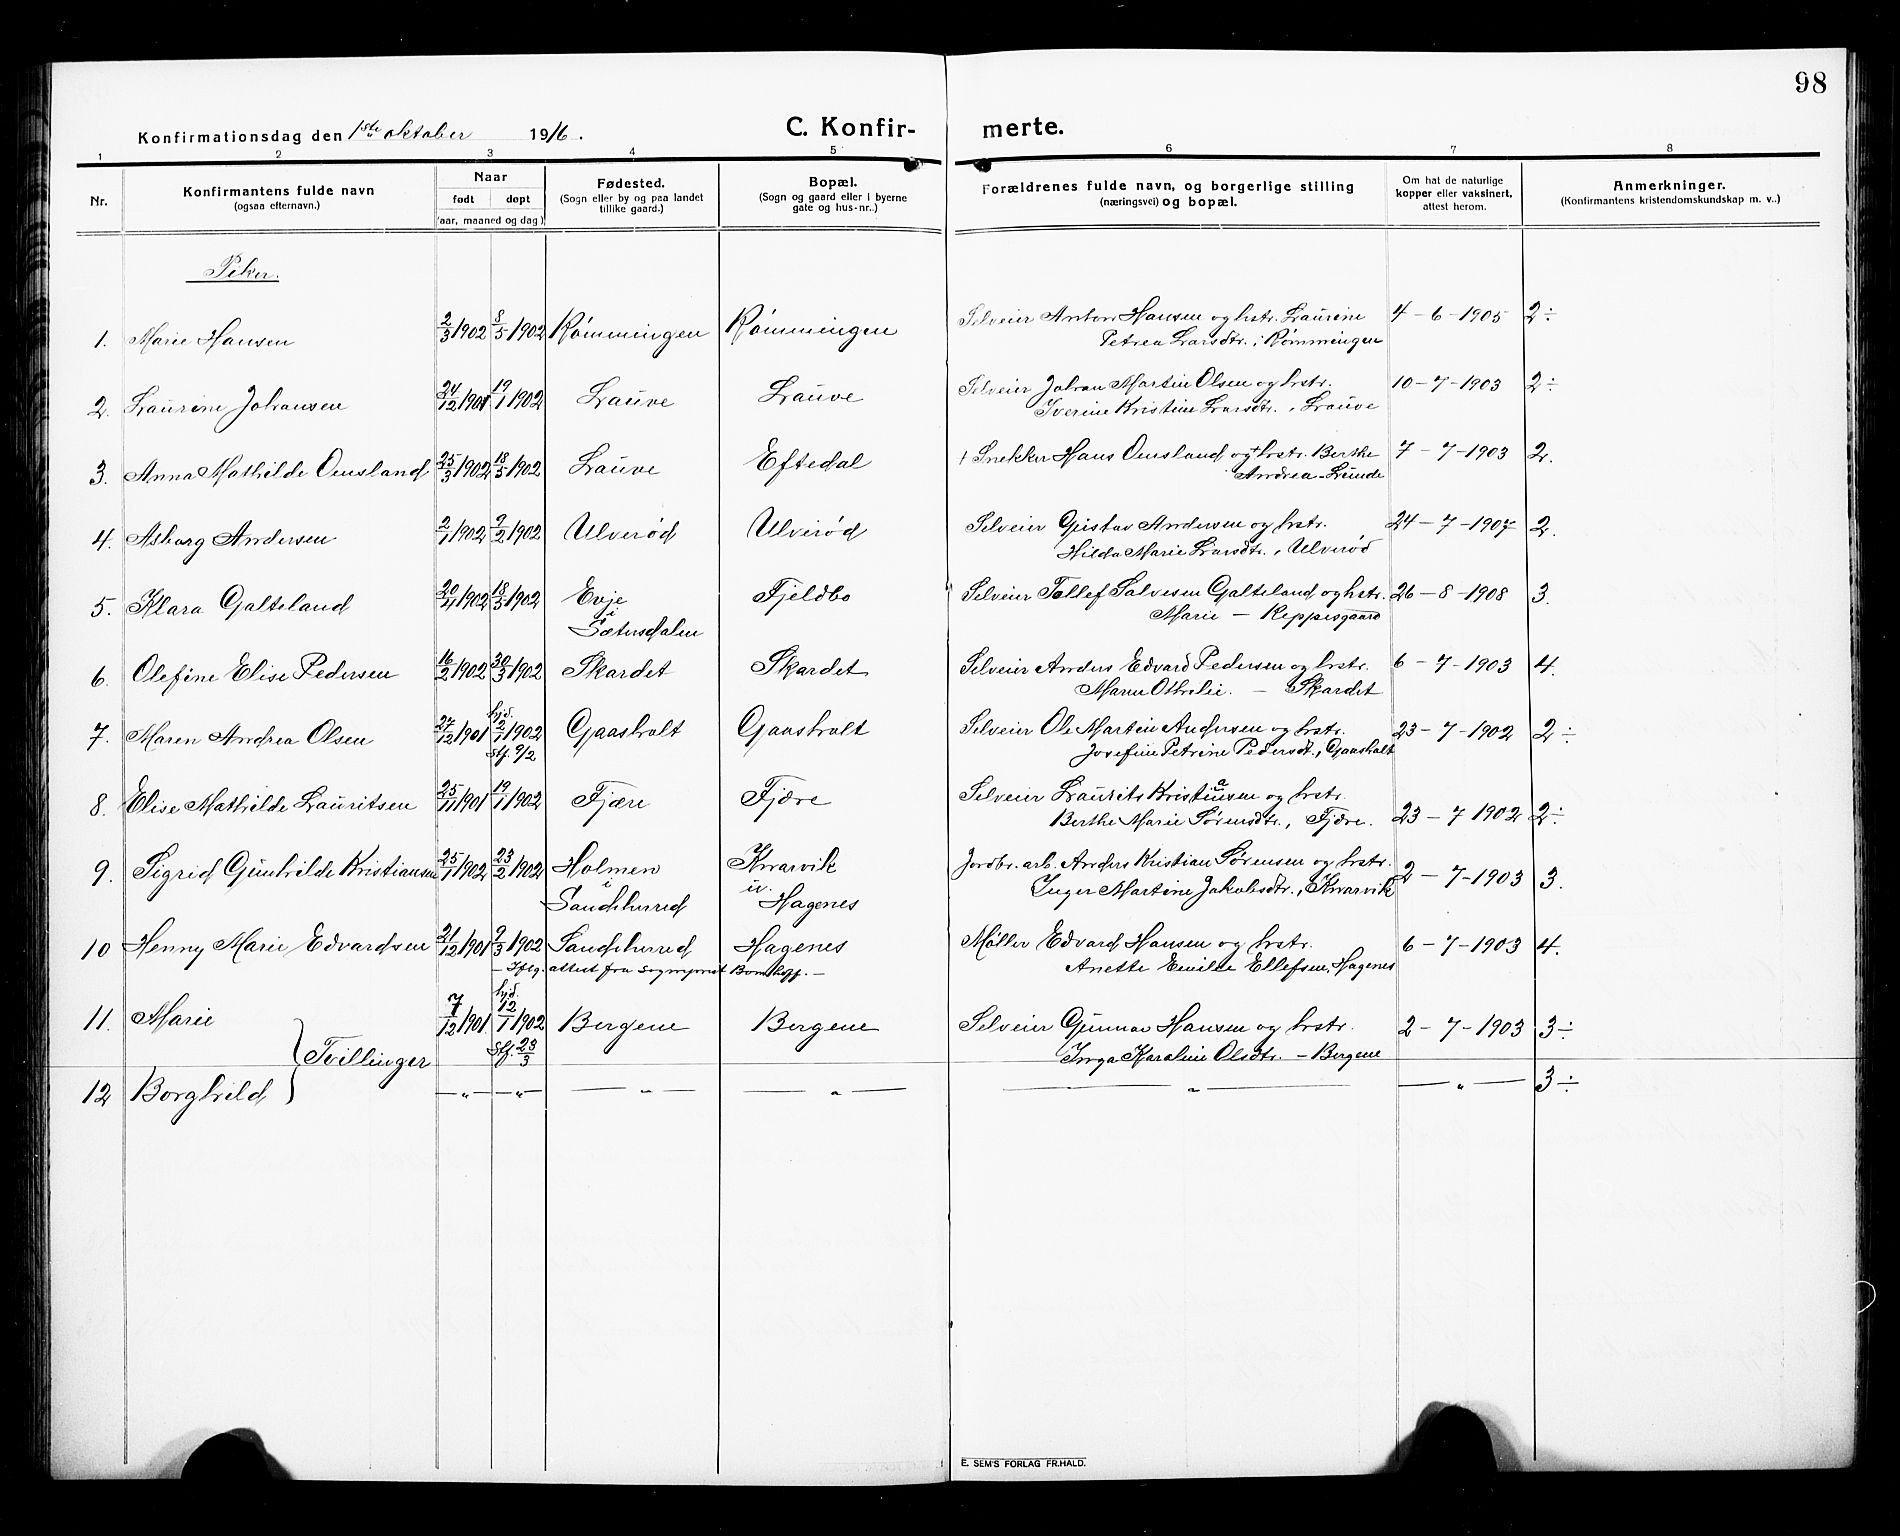 98
Konfirmationsdag den 1ste oktober 1916.
C. Konfirmerte.
1 2 3 4 5 6 7 8
Nr.
Konfirmantens fulde navn
(ogsaa efternavn.)
Naar
født døpt
(aar, maaned og dag)
Fødested.
(Sogn eller by og paa landet
tillike gaard.)
Bopæl.
(Sogn og gaard eller i byerne
gate og hus-nr..)
Forældrenes fulde navn, og borgerlige stilling
(næringsvei) og bopæl.
Om hat de naturlige
kopper eller vaksinert,
attest herom.
Anmerkninger.
(Konfirmantens kristendomskundskap m. v..)
Piker.
1. Marie Hansen 2/3 1902 8/5 1902 Rømmingen Rømmingen Selveier Anton Hansen og hstr. Laurine 4-6-1905 2÷
Petrea Larsdtr. i Rømmingen
2. Laurine Johansen 24/12 1901 19/1 1902 Lauve Lauve Selveier Johan Martin Olsen og hstr. 10-7-1903 2÷
Iverine Kristine Larsdtr., Lauve
3. Anna Mathilde Omsland 25/3 1902 18/5 1902 Lauve Eftedal † Snekker Hans Omsland og † hstr. Berthe 7-7-1903 2.
Andrea - Lunde
4. Asborg Andersen 2/1 1902 9/2 1902 Ulverød Ulverød Selveier Gustav Andersen og hstr. 24-7-1907 2.
Hilda Marie Larsdtr., Ulverød
5. Klara Galteland 20/4 1902 18/5 1902 Evje Fjeldbo Selveier Tollef Salvesen Galteland og hstr. 26-8-1908 3.
i
Sætersdalen Marie - Keppesgaard
6. Olefine Elise Pedersen 16/2 1902 30/3 1902 Skardet Skardet Selveier Anders Edvard Pedersen og hstr. 6-7-1903 4.
Maren Othilie. - Skardet
7. Maren Andrea Olsen 27/12 1901 hjd. 2/1 1902 Gaasholt Gaasholt Selveier Ole Martin Andersen og hstr. 23-7-1902 2÷
Stf. 9/2 Josefine Petrine Pedersdt., Gaasholt
8. Elise Mathilde Lauritsen 25/11 1901 19/1 1902 Fjære Fjære Selveier Laurits Kristiansen og hstr.
Berthe Marie Sørensdtr., Fjære. 23-7 1902 2÷
9. Sigrid Gunhilde Kristiansen 25/1 1902 23/2 1902 Holmen Kvarvik Jordbr. arb. Anders Kristian Sørensen og hstr. 2-7-1903 3.
i u.
Sandeherred Hagenes Inger Martine Jakobsdtr., Kvarvik
10 Henny Marie Edvardsen 21/12 1901 9/3 1902 Sandeherred Hagenes Møller Edvard Hansen og hstr. 6-7-1903 4.
- Iflg. attest fra sogneprest - Anette Emilie Ellefsen, Hagenes
11. Marie 7/12 1901 hjd. 12/1 1902 Bergene Bergene Selveier Gunnar Hansen og hstr. 2-7-1903 3÷
Tvillinger Stf. 23/3 Inga Karoline Olsdtr. - Bergene
12 Borghild —„— —„— —„— —„— —„— —„— 3÷
E. SEM'S FORLAG FR.HALD.